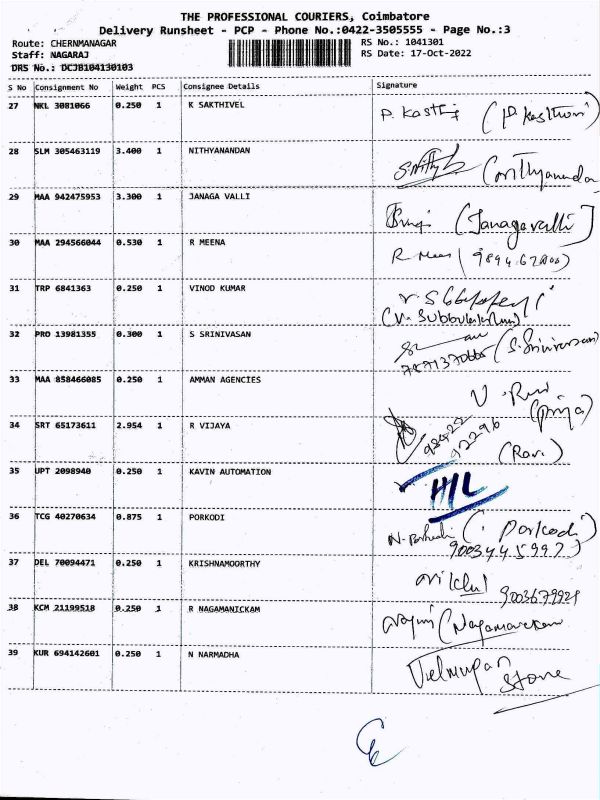 THE PROFESSIONAL COURIERS, Coimbatore
Delivery Runsheet - PCP - Phone No.:0422-3505555 - Page No.:3
Route: CHERNMANAGAR
Staff: NAGARAJ
DRS No.: DCJB104130103
RS No.: 1041301
RS Date: 17-Oct-2022
S No Consignment No Weight PCS Consignee Details Signature
27 NKL 3081066 0.250 1 K SAKTHIVEL (P. Kasthuri)
28 SLM 305463119 3.400 1 NITHYANANDAN
29 MAA 942475953 3.300 1 JANAGA VALLI (Janagavalli)
30 MAA 294566044 0.530 1 R MEENA R Meena
31 TRP 6841363 0.250 1 VINOD KUMAR
32 PRO 13981355 0.300 1 S SRINIVASAN (S. Srinivasan)
33 MAA 858466085 0.250 1 AMMAN AGENCIES (Priya)
34 SRT 65173611 2.954 1 R VIJAYA 98422 92296 (Ravi)
35 UPT 2098940 0.250 1 KAVIN AUTOMATION H/L
36 TCG 40270634 0.875 1 PORKODI (Porkodi)
37 DEL 70094471 0.250 1 KRISHNAMOORTHY 9003679929
38 KCM 21199518 0.250 1 R NAGAMANICKAM
39 KUR 694142601 0.250 1 N NARMADHA Velmurgan
Stone